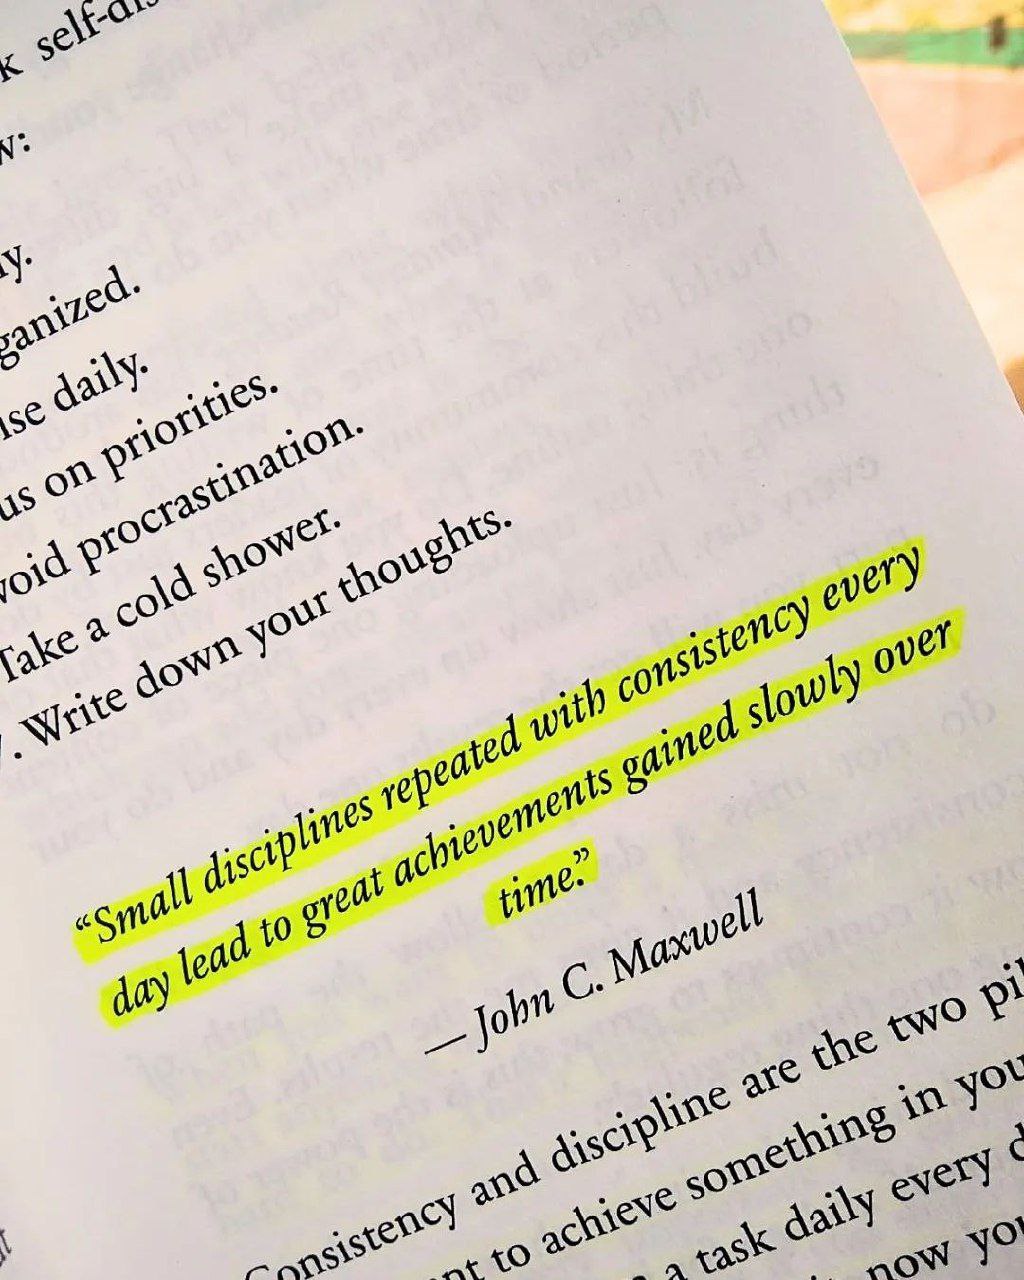 k self-dis
w:
ly.
ganized.
ise daily.
us on priorities.
void procrastination.
Take a cold shower.
7. Write down your thoughts.
“Small disciplines repeated with consistency every
day lead to great achievements gained slowly over
time.”
— John C. Maxwell
Consistency and discipline are the two pil
nt to achieve something in you
a task daily every d
now you